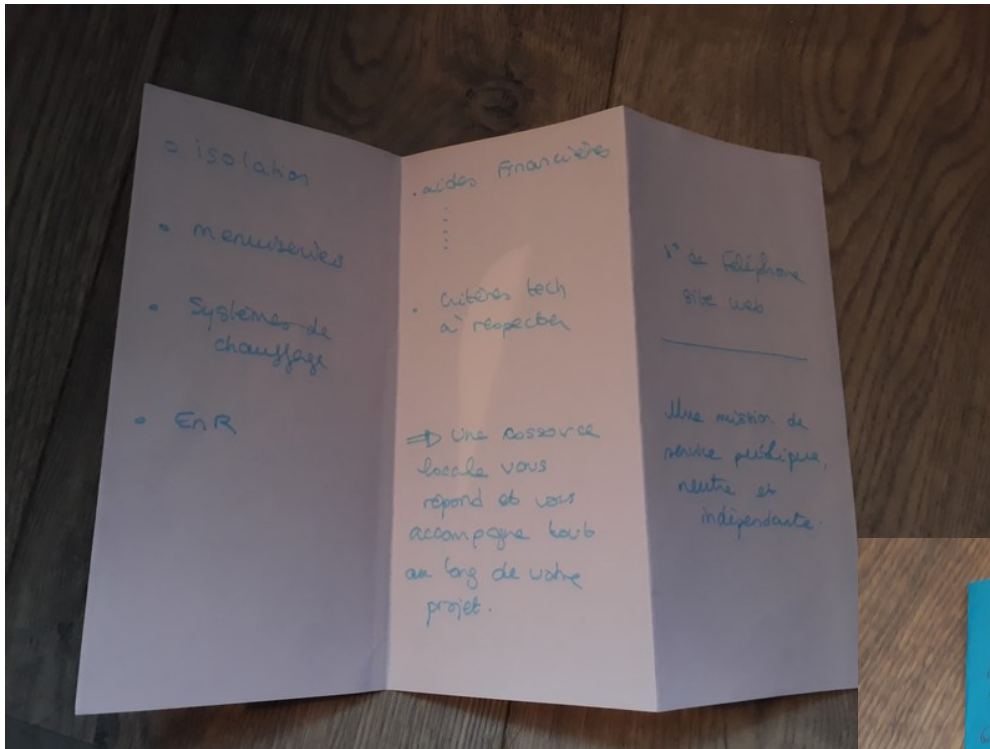 isolation
menuiseries
Systèmes de
chauffage
EnR
. aides Financières
. Critères tech
à respecter
⇒ Une ressource
locale vous
répond et vous
accompagne tout
au long de votre
projet.
N° de téléphone
site web
Une mission de
service publique,
neutre et
indépendante.